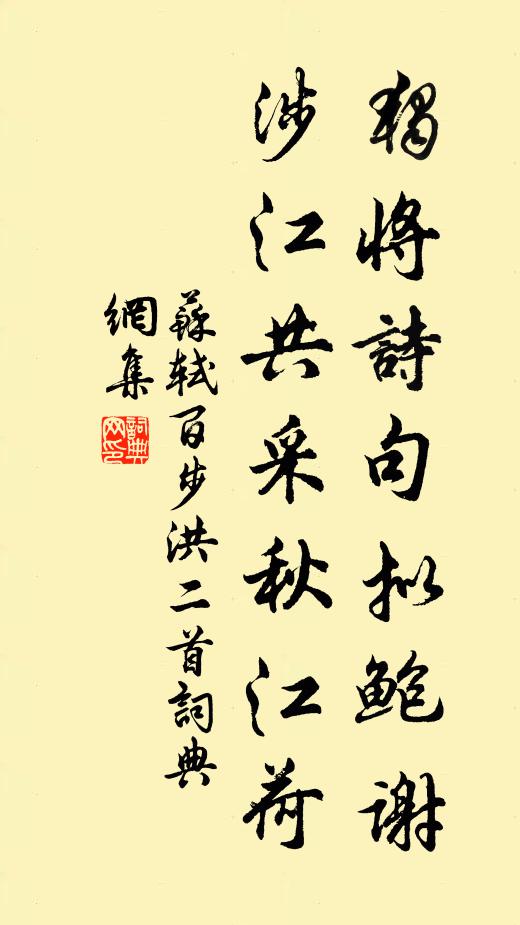 獨將詩句拟鮑謝
涉江共采秋江荷
蘇軾百步洪二首詞典
網集
詞典
网印